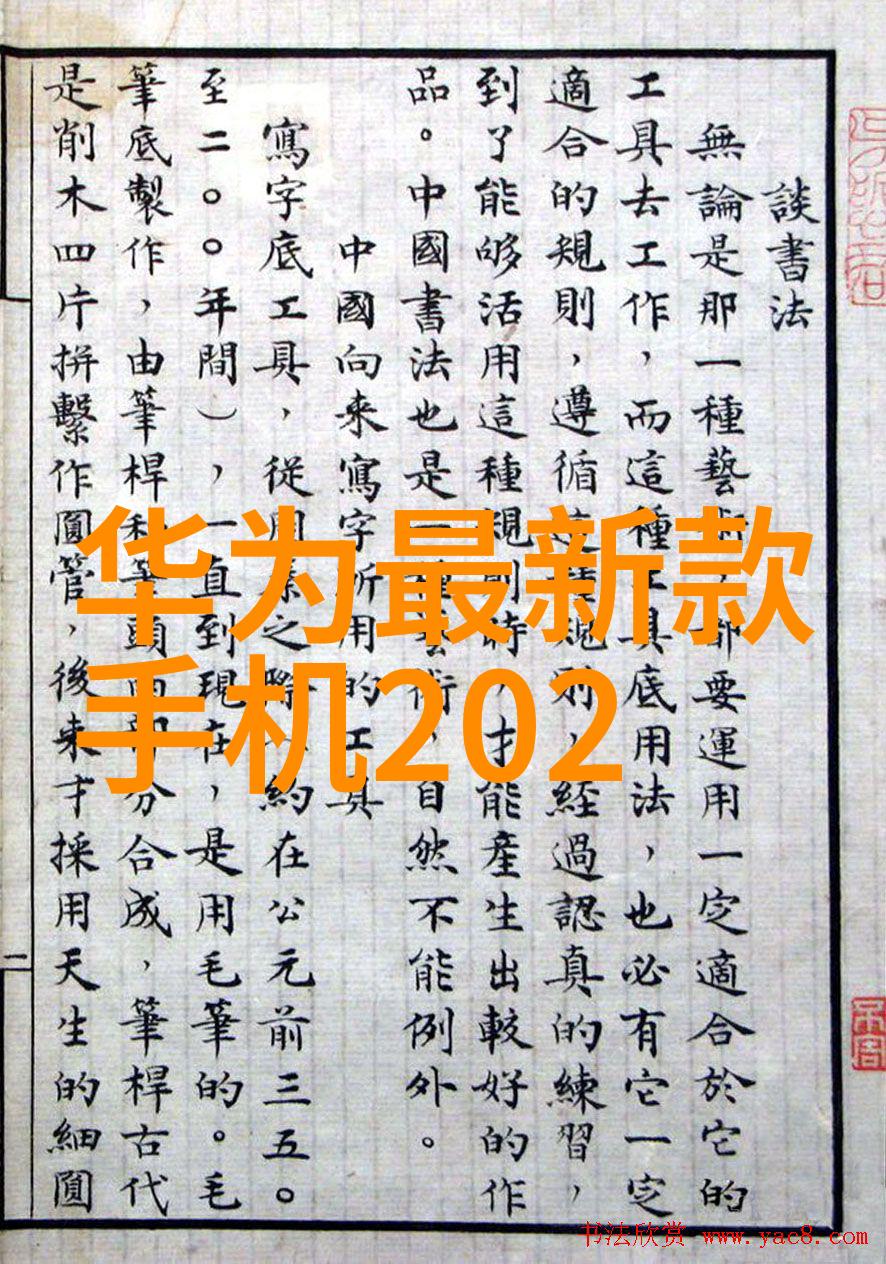 談書法
無論是那一種藝術，都要運用一定適合於它的
工具去工作，而這種工具底用法，也必有它一定
適合的規則，遵循這種規則，經過認真的練習，
到了能够活用這種規則時，才能產生出較好的作
品。中國書法也是一種藝術，自然不能例外。
中國向来寫字所用的工具
寫字底工具，從周秦之際（約在公元前三五〇
至二〇〇年間），一直到現在，是用毛筆的。毛
筆底製作，由筆桿和筆頭兩部分合成，筆桿古代
是削木四片拼繫作圓管，後来才採用天生的細圓
二
华为最新款
手机202
书法欣赏 www.yac8.com